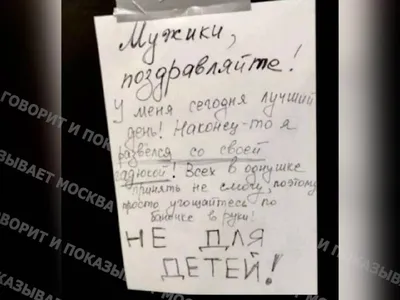 Мужики,
поздравляйте!
У меня сегодня лучший
день! Наконец-то я
развёлся со своей
гадюкой! Всех в однушке
принять не смогу, поэтому
просто угощайтесь по
баночке в руки!
НЕ ДЛЯ
ДЕТЕЙ!
ГОВОРИТ И ПОКАЗЫВАЕТ МОСКВА